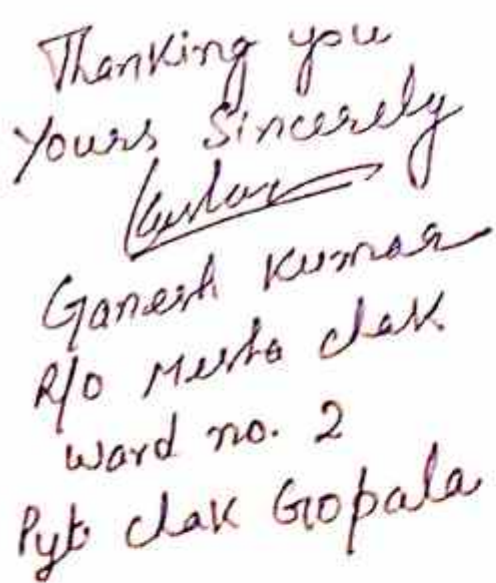 Thanking you
Yours Sincerely
Ganesh Kumar
R/O Musta chak
Ward no. 2
Pyt chak Gopala